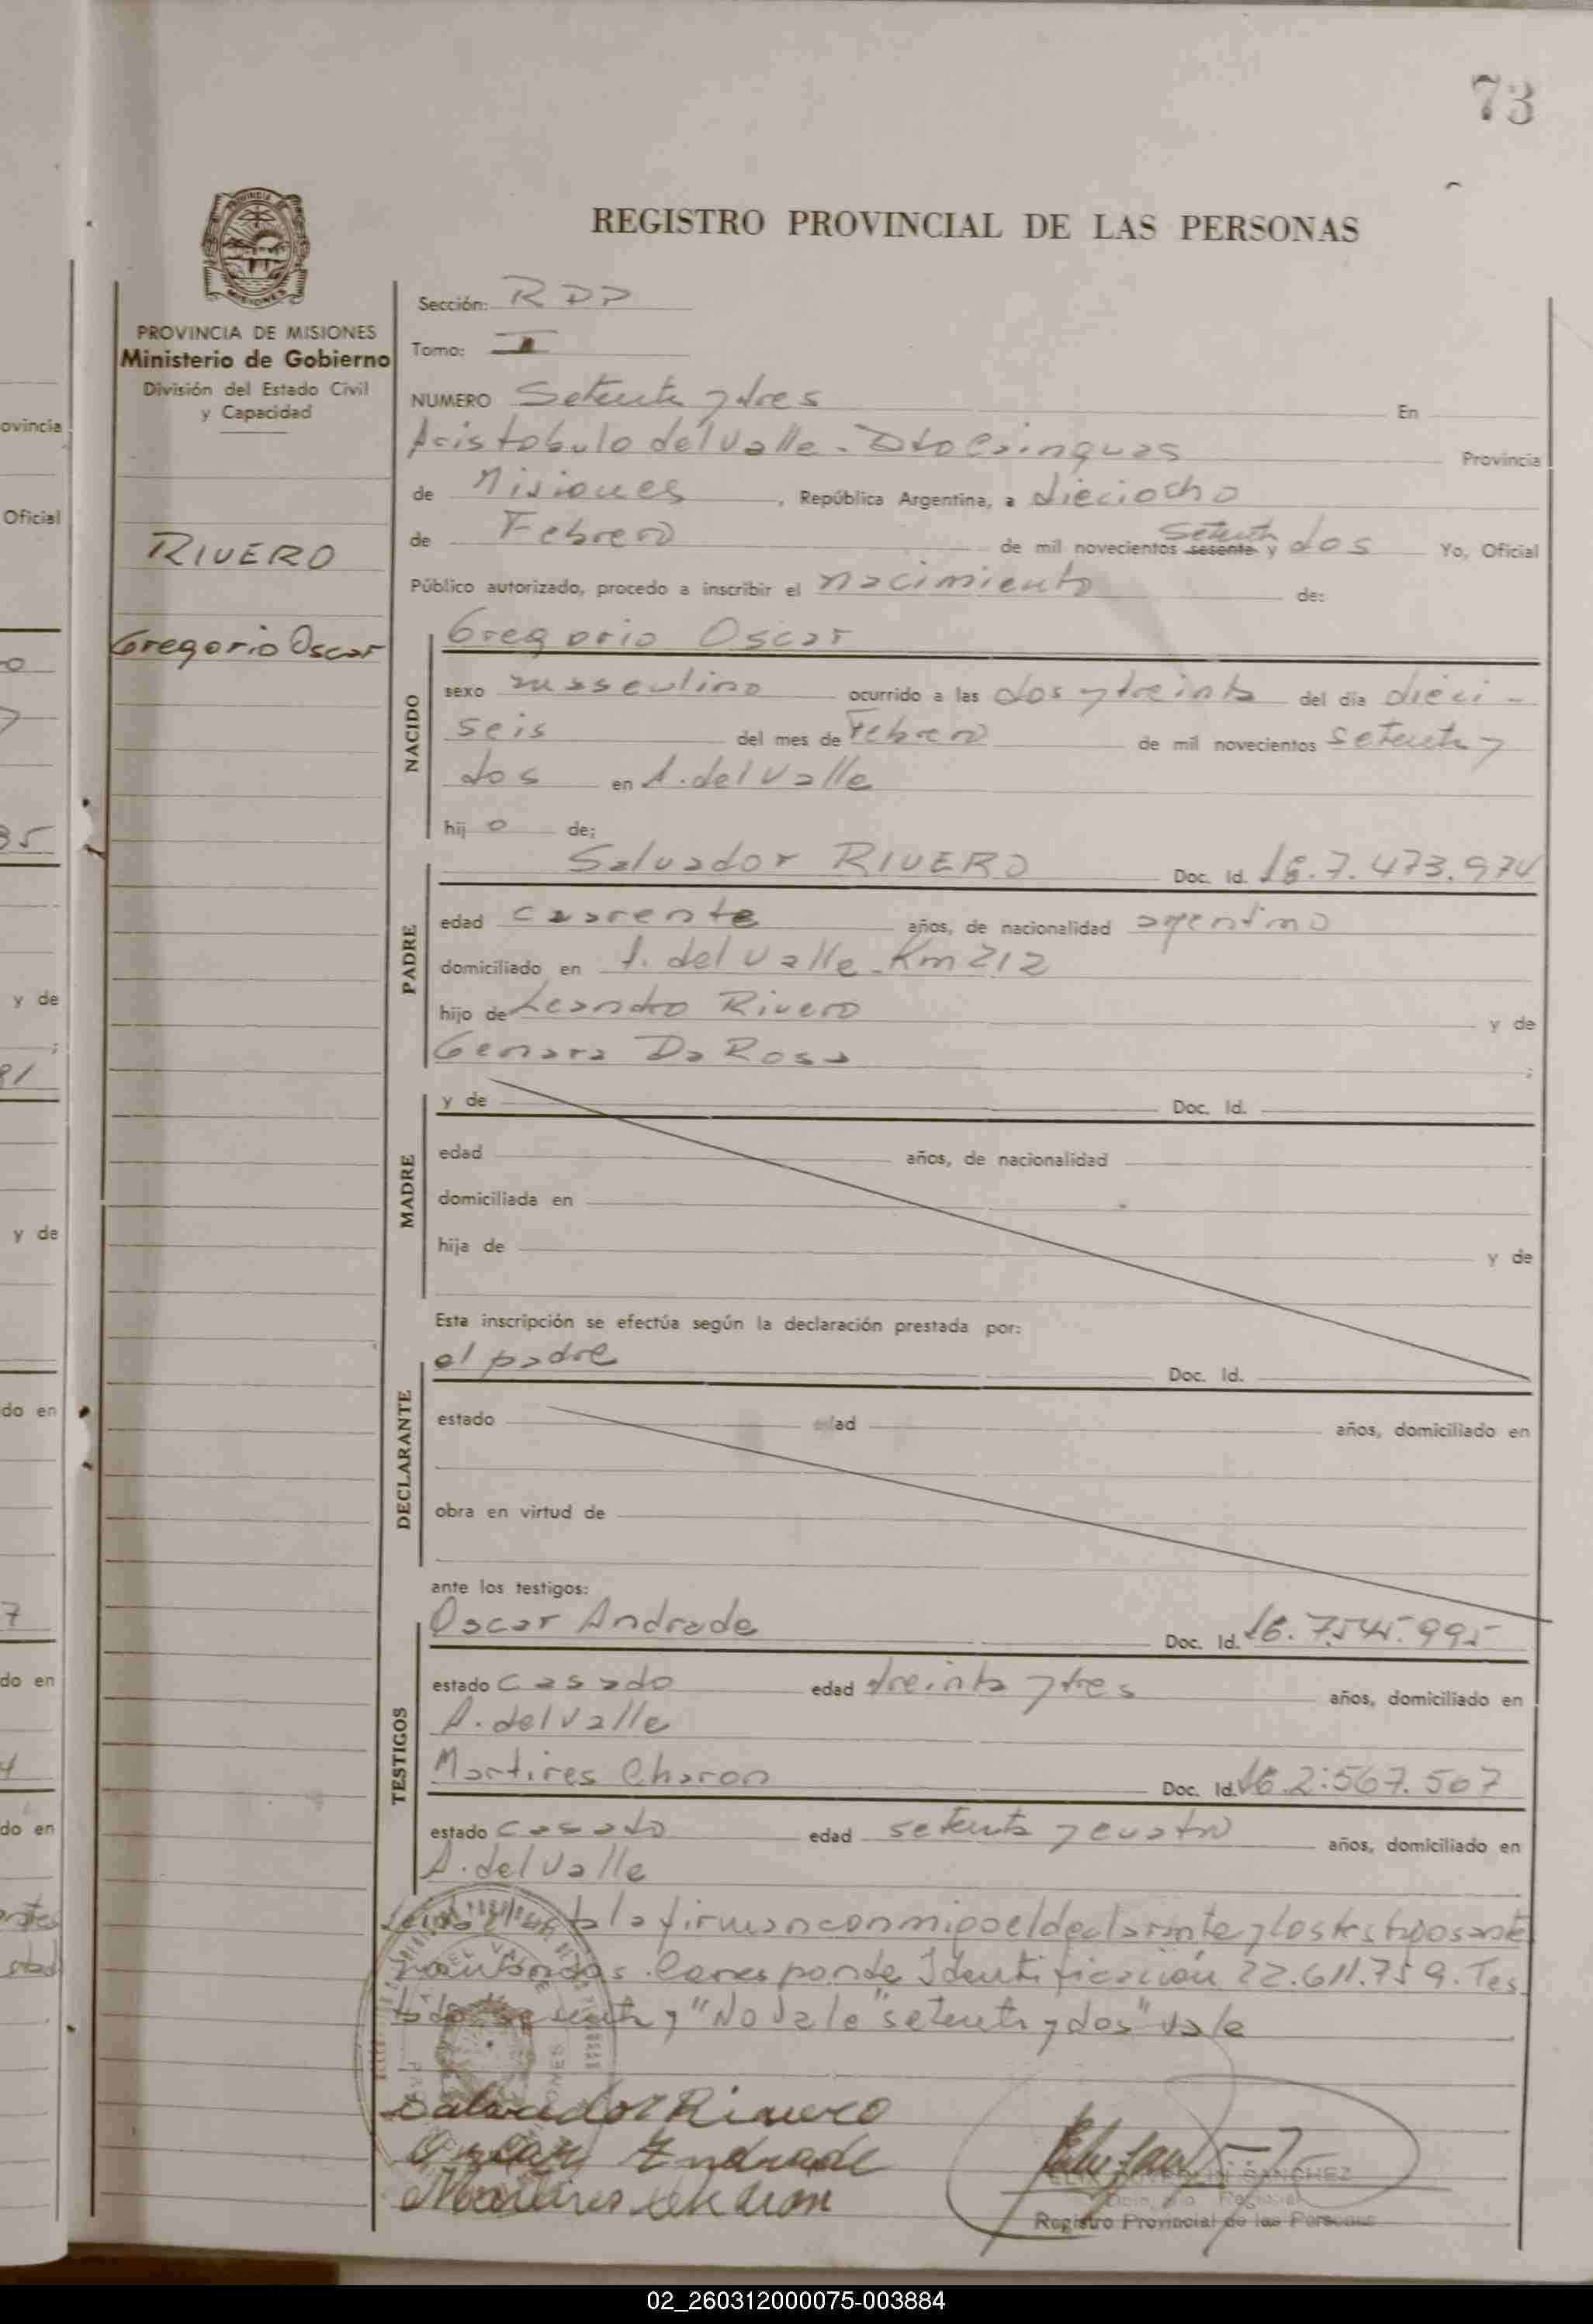 73
REGISTRO PROVINCIAL DE LAS PERSONAS
PROVINCIA DE MISIONES
Ministerio de Gobierno
División del Estado Civil
y Capacidad
RIVERO
Gregorio Oscar
Sección: RDP
Tomo: I
NUMERO Setenta y tres En
Aristobulo del Valle - Dto Cainguas Provincia
de Misiones, República Argentina, a dieciocho
de Febrero de mil novecientos sesenta y setenta dos Yo, Oficial
Público autorizado, procedo a inscribir el nacimiento de:
NACIDO
Gregorio Oscar
sexo masculino ocurrido a las dos y treinta del día dieci-
seis del mes de Febrero de mil novecientos setenta y
dos en A. del Valle
hijo de:
PADRE
Salvador RIVERO Doc. Id. 7.473.974
edad cuarenta años, de nacionalidad argentino
domiciliado en A. del Valle - Km 212
hijo de Leandro Rivero y de
Genara Da Rosa ;
MADRE
y de Doc. Id.
edad años, de nacionalidad
domiciliada en
hija de y de
Esta inscripción se efectúa según la declaración prestada por:
DECLARANTE
el padre Doc. Id.
estado edad años, domiciliado en
obra en virtud de
ante los testigos:
TESTIGOS
Oscar Andrade Doc. Id. 7.545.995
estado casado edad treinta y tres años, domiciliado en
A. del Valle
Martires Charon Doc. Id. 2.567.507
estado casado edad setenta y cuatro años, domiciliado en
A. del Valle
Leida el acta la firman conmigo el declarante y los testigos ante
nombrados. Corresponde Identificación 22.611.759. Tes
tado sesenta y "No Vale" setenta y dos" vale
Salvador Rivero
Oscar Andrade
Martires Charon
SANCHEZ
Registro Provincial de las Personas
ovincia
Oficial
35
y de
81
y de
do en
7
do en
4
do en
02_260312000075-003884